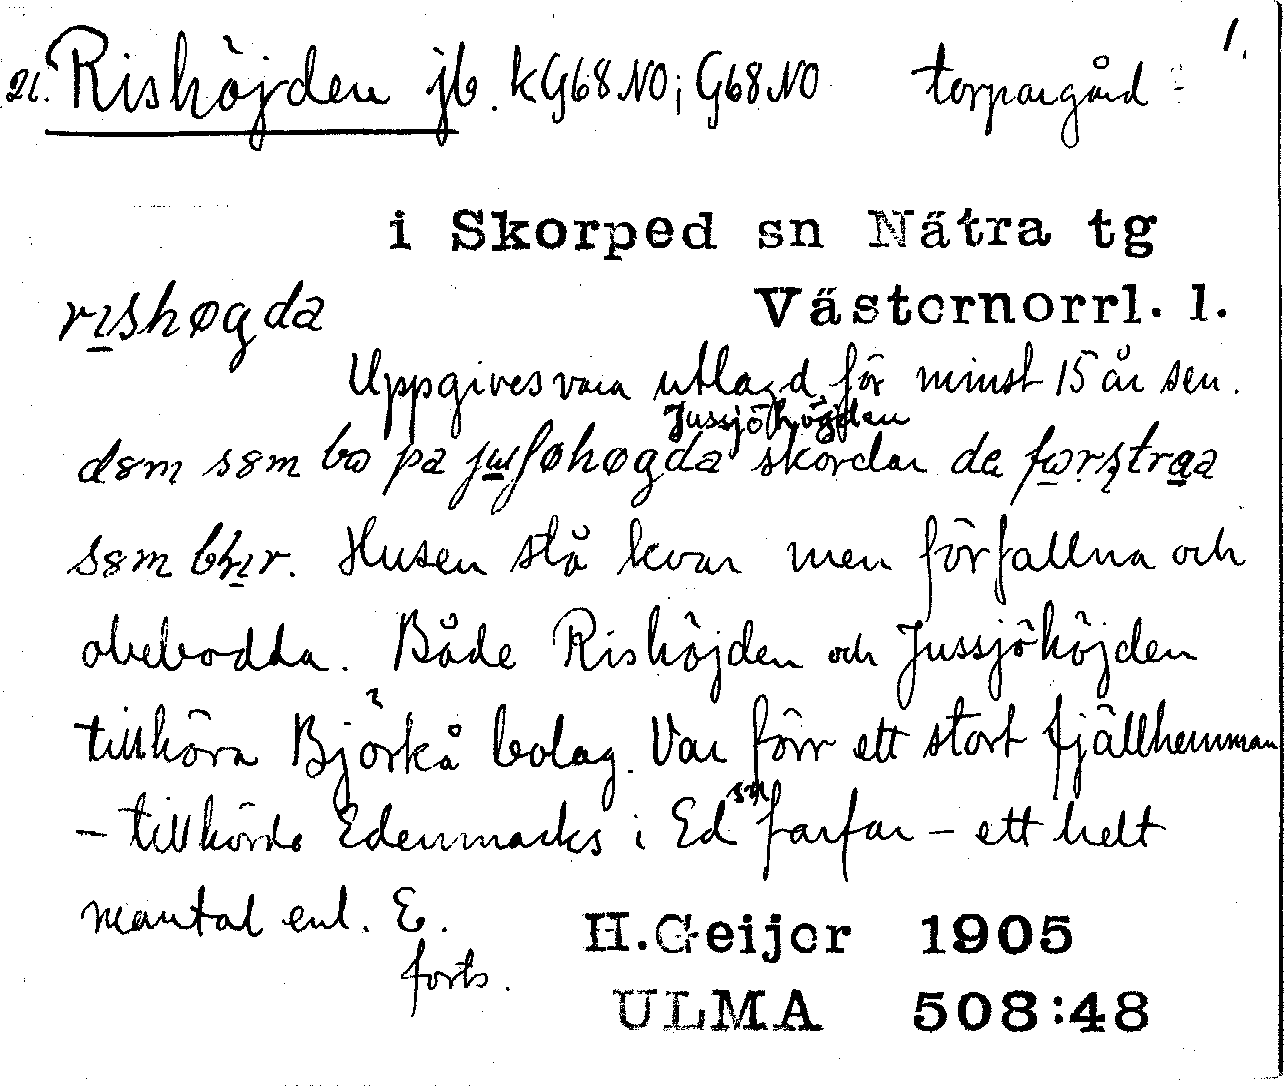 1.
21. Rishöjden jb. kG68NO; G68NO torpargård
i Skorped sn Nätra tg
rıshøgda Västernorrl. l.
Uppgives vara utlagd för minst 15 år sen.
Jussjöhöjden
som bo på skördar de
Husen stå kvar men förfallna och
obebodda. Både Rishöjden och Jussjöhöjden
tillhöra Björkå bolag. Var förr ett stort fjällhemman
– tillhörde Edenmarks i Ed sn farfar – ett helt
mantal enl. E.
H.Geijer 1905
forts.
ULMA 508:48